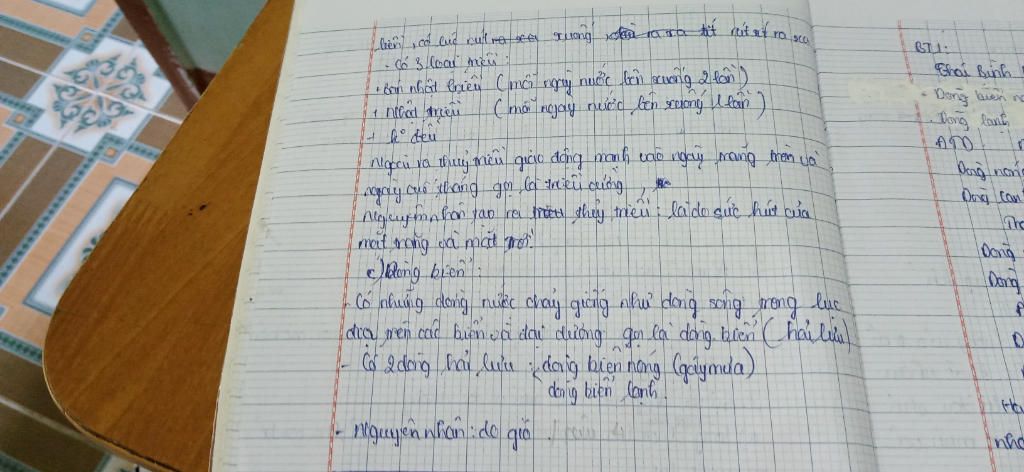 biển, có lúc rút xuống,
- có 3 loại triều:
- bán nhật triều (mỗi ngày nước lên xuống 2 lần)
+ nhật triều (mỗi ngày nước lên xuống 1 lần)
+ k° đều
ngoài ra thuỷ triều giao động mạnh vào ngày trăng tròn và
ngày cuối tháng gọi là triều cường,
nguyên nhân tạo ra thủy triều: là do sức hút của
mặt trăng và mặt trời.
c) Dòng biển:
- Có những dòng nước chảy giống như dòng sông trong lục
địa, trên các biển và đại dương gọi là dòng biển (hải lưu)
- Có 2 dòng hải lưu: dòng biển nóng (gây mưa)
dòng biển lạnh.
- nguyên nhân: do gió
BT1:
Thái Bình
- Dòng biển n
- Dòng lạnh
ATD
Dòng nóng
Dòng lạn
Dòng
Dòng